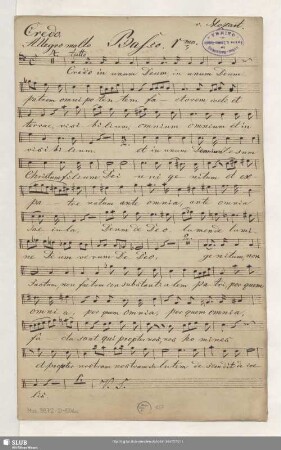 v. Mozart.
Credo.
Basso. 1mo
Allegro molto
Tutti
Credo in unum Deum, in unum Deum
patrem omni po ten tem fa - ctorem coeli et
terrae, visi bilium omnium omnium et in
visi bilium et in unum Dominum Jesum
Christum filium Dei u ni ge - nitum et ex
pa - tre natum ante omnia, ante omnia
Sae cu la, Deum de Deo, lumen de lumi
ne Deum verum de Deo, ge nitum non
factum, con substantia lem pa tri, per quem
omni a per quem omnia, per quem omnia,
fa - cta sunt qui propter nos, nos ho mines
et propter nostram nostram salutem de scendit de coe
lis V. S.
SLUB